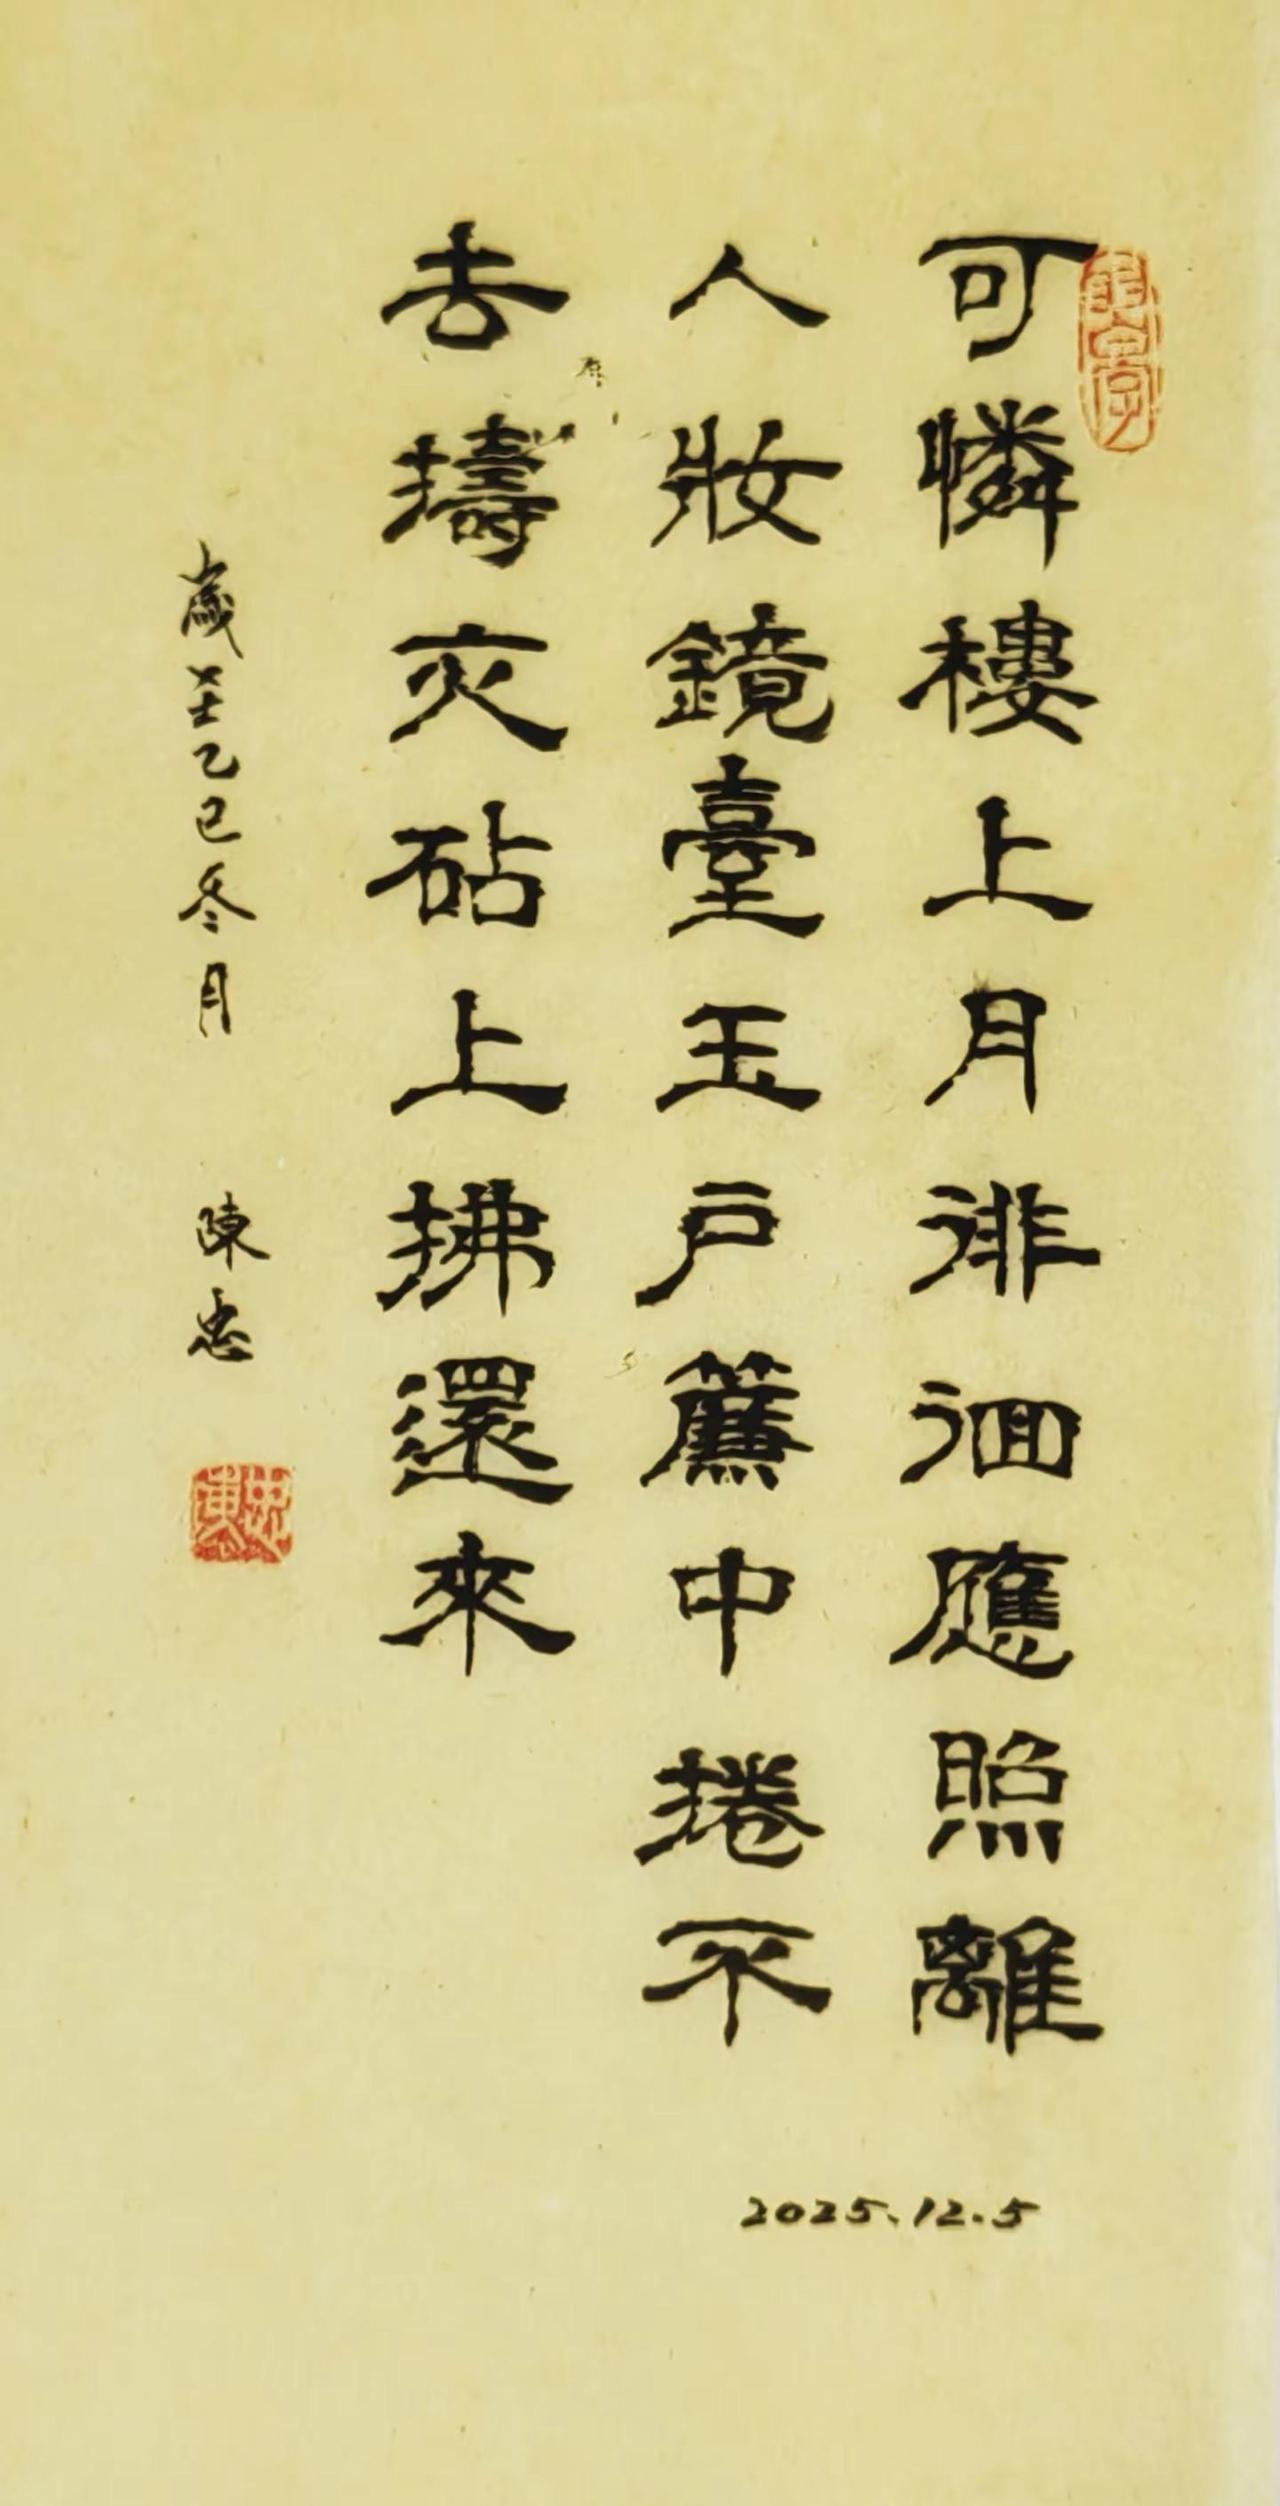 可憐樓上月徘徊應照離
人妝鏡臺玉戶簾中捲不
去擣衣砧上拂還來
歲在乙巳冬月 陳忠
2025.12.5